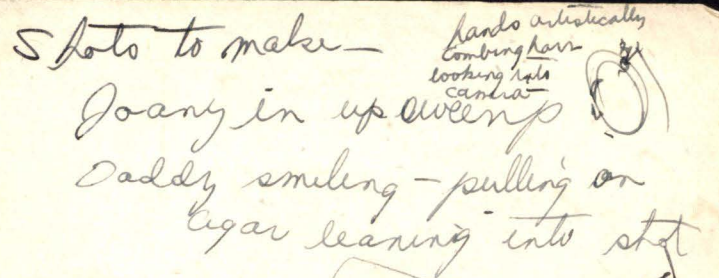 Shots to make—
hands artistically
combing hair
looking into
camera—
Joany in up sweep
Daddy smiling — pulling on
cigar leaning into shot